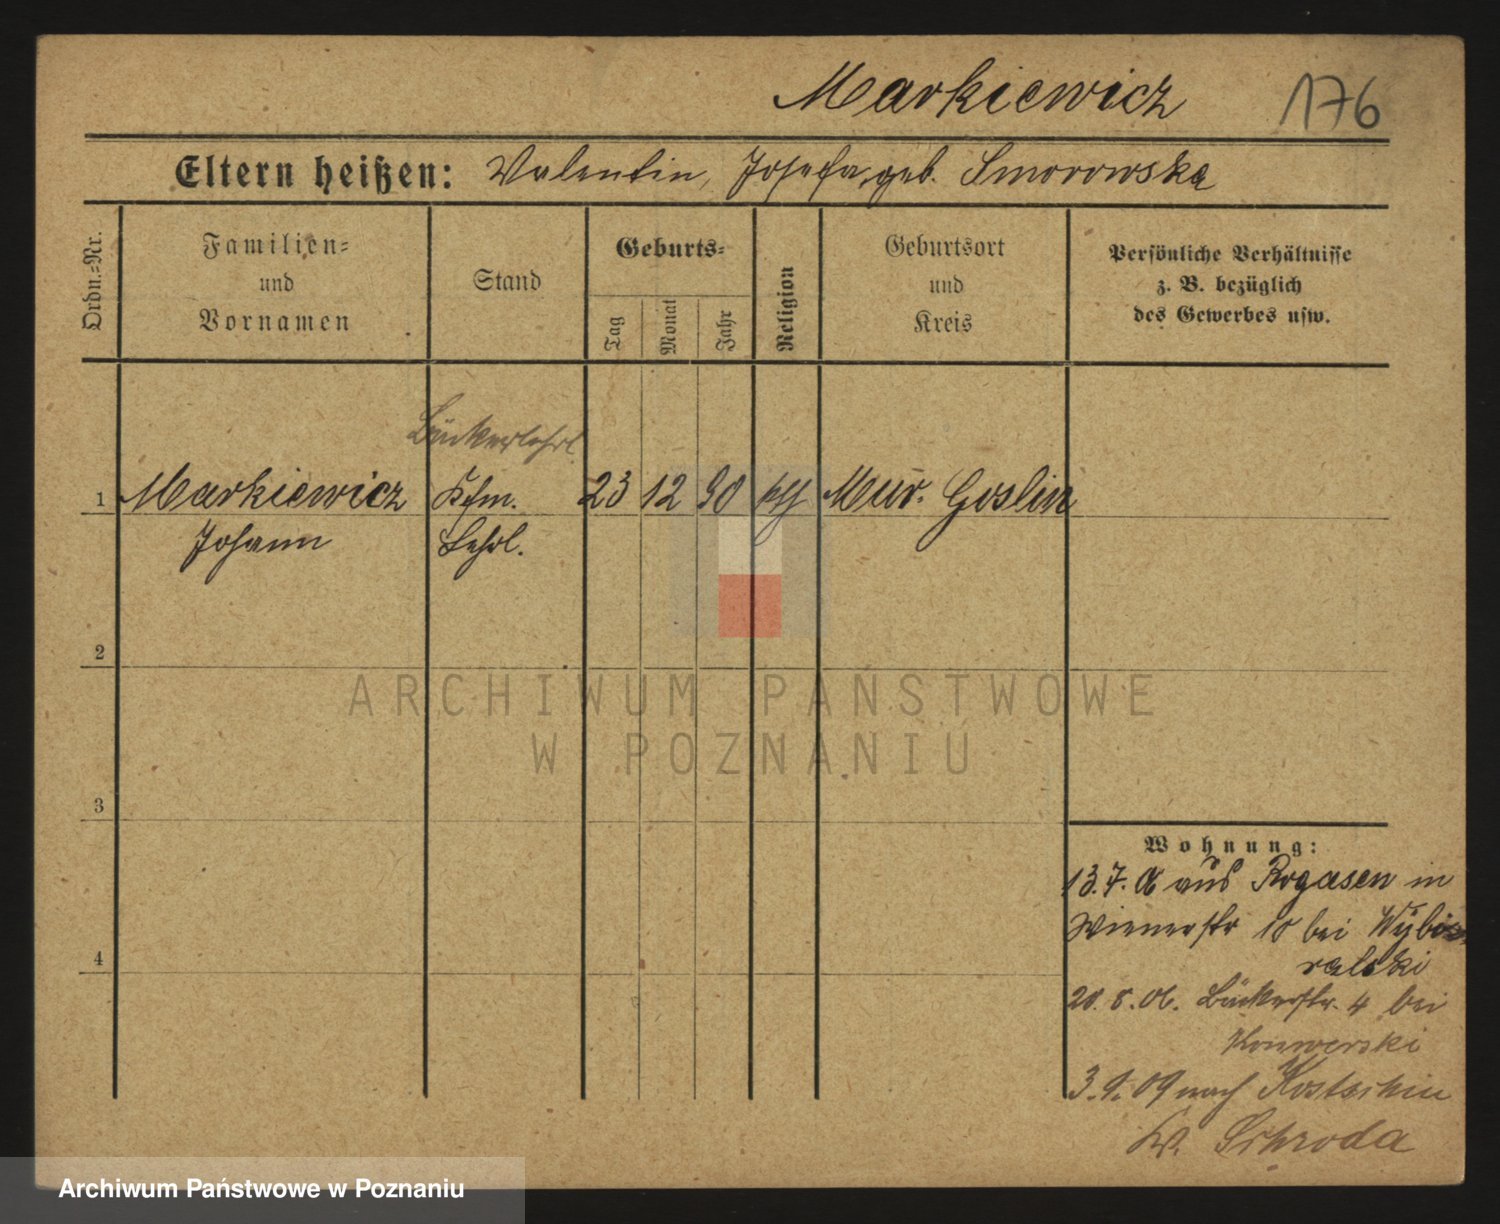 Markiewicz 176
Eltern heißen: Valentin, Josefa, geb. Smorowska
Ordn.=Nr.
Familien=
und
Vornamen
Stand
Geburts=
Tag
Monat
Jahr
Religion
Geburtsort
und
Kreis
Persönliche Verhältnisse
z. B. bezüglich
des Gewerbes usw.
Bäckerlehrl.
1 Markiewicz Kfm. 23 12 90 kth Mur. Goslin
Johann Lehrl.
2
ARCHIWUM PAŃSTWOWE
W POZNANIU
3
Wohnung:
13.7. 06 aus Rogasen in
Wienerstr 10 bei
ralski
20. 8. 06. Bäckerstr. 4 bei
3. 9. 09 nach Kostschin
Kr. Schroda
4
Archiwum Państwowe w Poznaniu